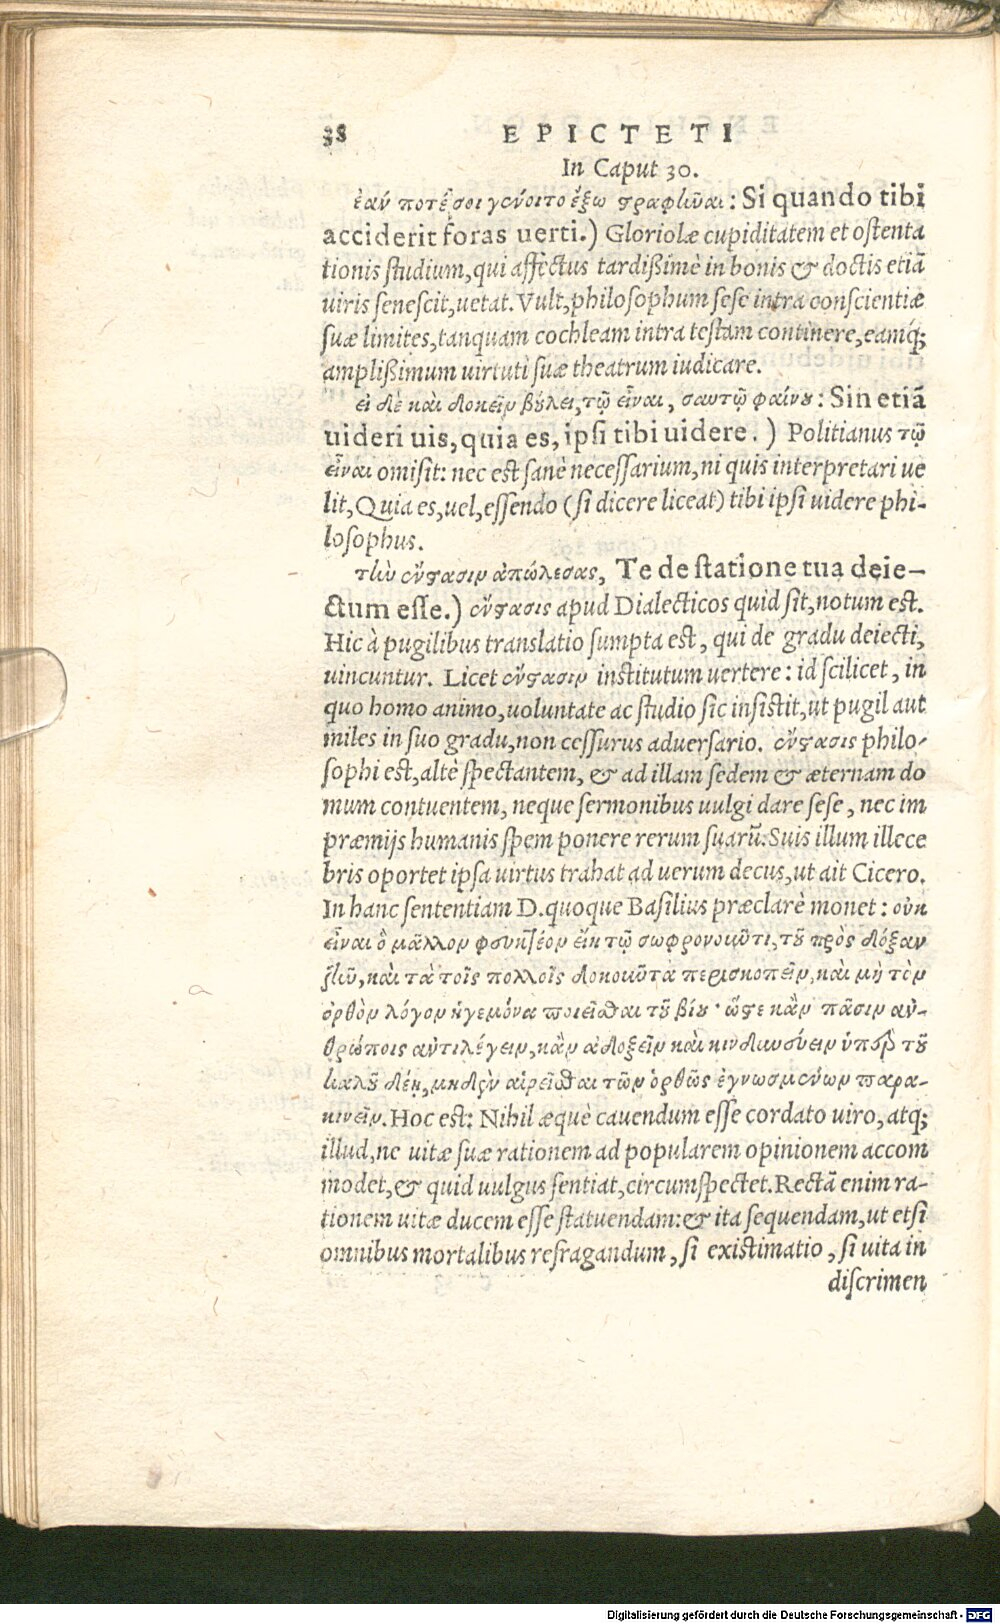 38 EPICTETI
In Caput 30.
ἐάν ποτέ σοι γένοιτο ἔξω στραφῆναι: Si quando tibi
acciderit foras uerti.) Gloriolæ cupiditatem et ostenta
tionis studium, qui affectus tardißimè in bonis & doctis etiã
uiris senescit, uetat. Vult, philosophum sese intra conscientiæ
suæ limites, tanquam cochleam intra testam continere, eamq́;
amplißimum uirtuti suæ theatrum iudicare.
εἰ δὲ καὶ δοκεῖν βούλει, τῷ εἶναι, σαυτῷ φαίνου: Sin etiã
uideri uis, quia es, ipsi tibi uidere.) Politianus τῷ
εἶναι omisit: nec est sanè necessarium, ni quis interpretari ue
lit, Quia es, uel, essendo (si dicere liceat) tibi ipsi uidere phi-
losophus.
τὴν ἔνστασιν ἀπώλεσας, Te de statione tua deie-
ctum esse.) ἔνστασις apud Dialecticos quid sit, notum est.
Hic à pugilibus translatio sumpta est, qui de gradu deiecti,
uincuntur. Licet ἔνστασιν institutum uertere: id scilicet, in
quo homo animo, uoluntate ac studio sic insistit, ut pugil aut
miles in suo gradu, non cessurus aduersario. ἔνστασις philo-
sophi est, altè spectantem, & ad illam sedem & æternam do
mum contuentem, neque sermonibus uulgi dare sese, nec im
præmijs humanis spem ponere rerum suarũ. Suis illum illece
bris oportet ipsa uirtus trahat ad uerum decus, ut ait Cicero.
In hanc sententiam D. quoque Basilius præclarè monet: οὐκ
εἶναι ὃ μᾶλλον φευκτέον εἴη τῷ σωφρονοῦντι, τοῦ πρὸς δόξαν
ζῆν, καὶ τὰ τοῖς πολλοῖς δοκοῦντα περισκοπεῖν, καὶ μὴ τὸν
ὀρθὸν λόγον ἡγεμόνα ποιεῖσθαι τοῦ βίου· ὥστε κἂν πᾶσιν ἀν-
θρώποις ἀντιλέγειν, κἂν ἀδοξεῖν καὶ κινδυνεύειν ὑπὲρ τοῦ
καλοῦ δέῃ, μηδὲν αἱρεῖσθαι τῶν ὀρθῶς ἐγνωσμένων παρα-
κινεῖν. Hoc est: Nihil æquè cauendum esse cordato uiro, atq;
illud, ne uitæ suæ rationem ad popularem opinionem accom
modet, & quid uulgus sentiat, circumspectet. Rectã enim ra-
tionem uitæ ducem esse statuendam: & ita sequendam, ut etsi
omnibus mortalibus refragandum, si existimatio, si uita in
discrimen
Digitalisierung gefördert durch die Deutsche Forschungsgemeinschaft - DFG